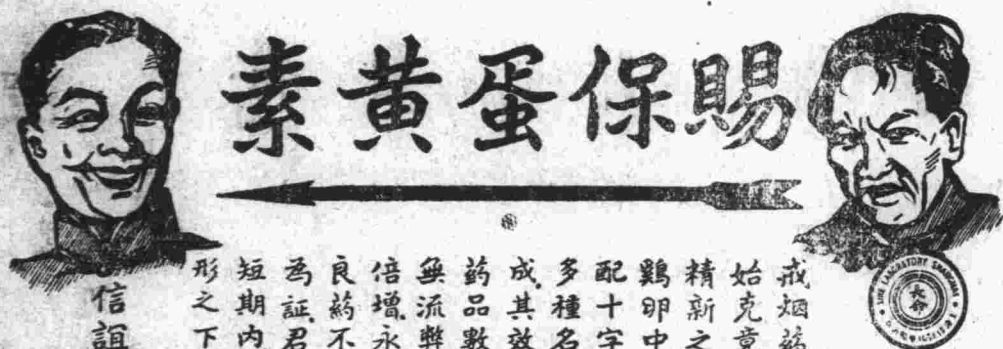 賜保蛋黃素
戒烟葯
始克竟
精新之
鷄卵中
配十字
多種名
成.其效
葯品數
無流弊
倍增.永
良葯不
為証.君
短期內
形之下
信誼
LABORATORY SHANGHAI
長命